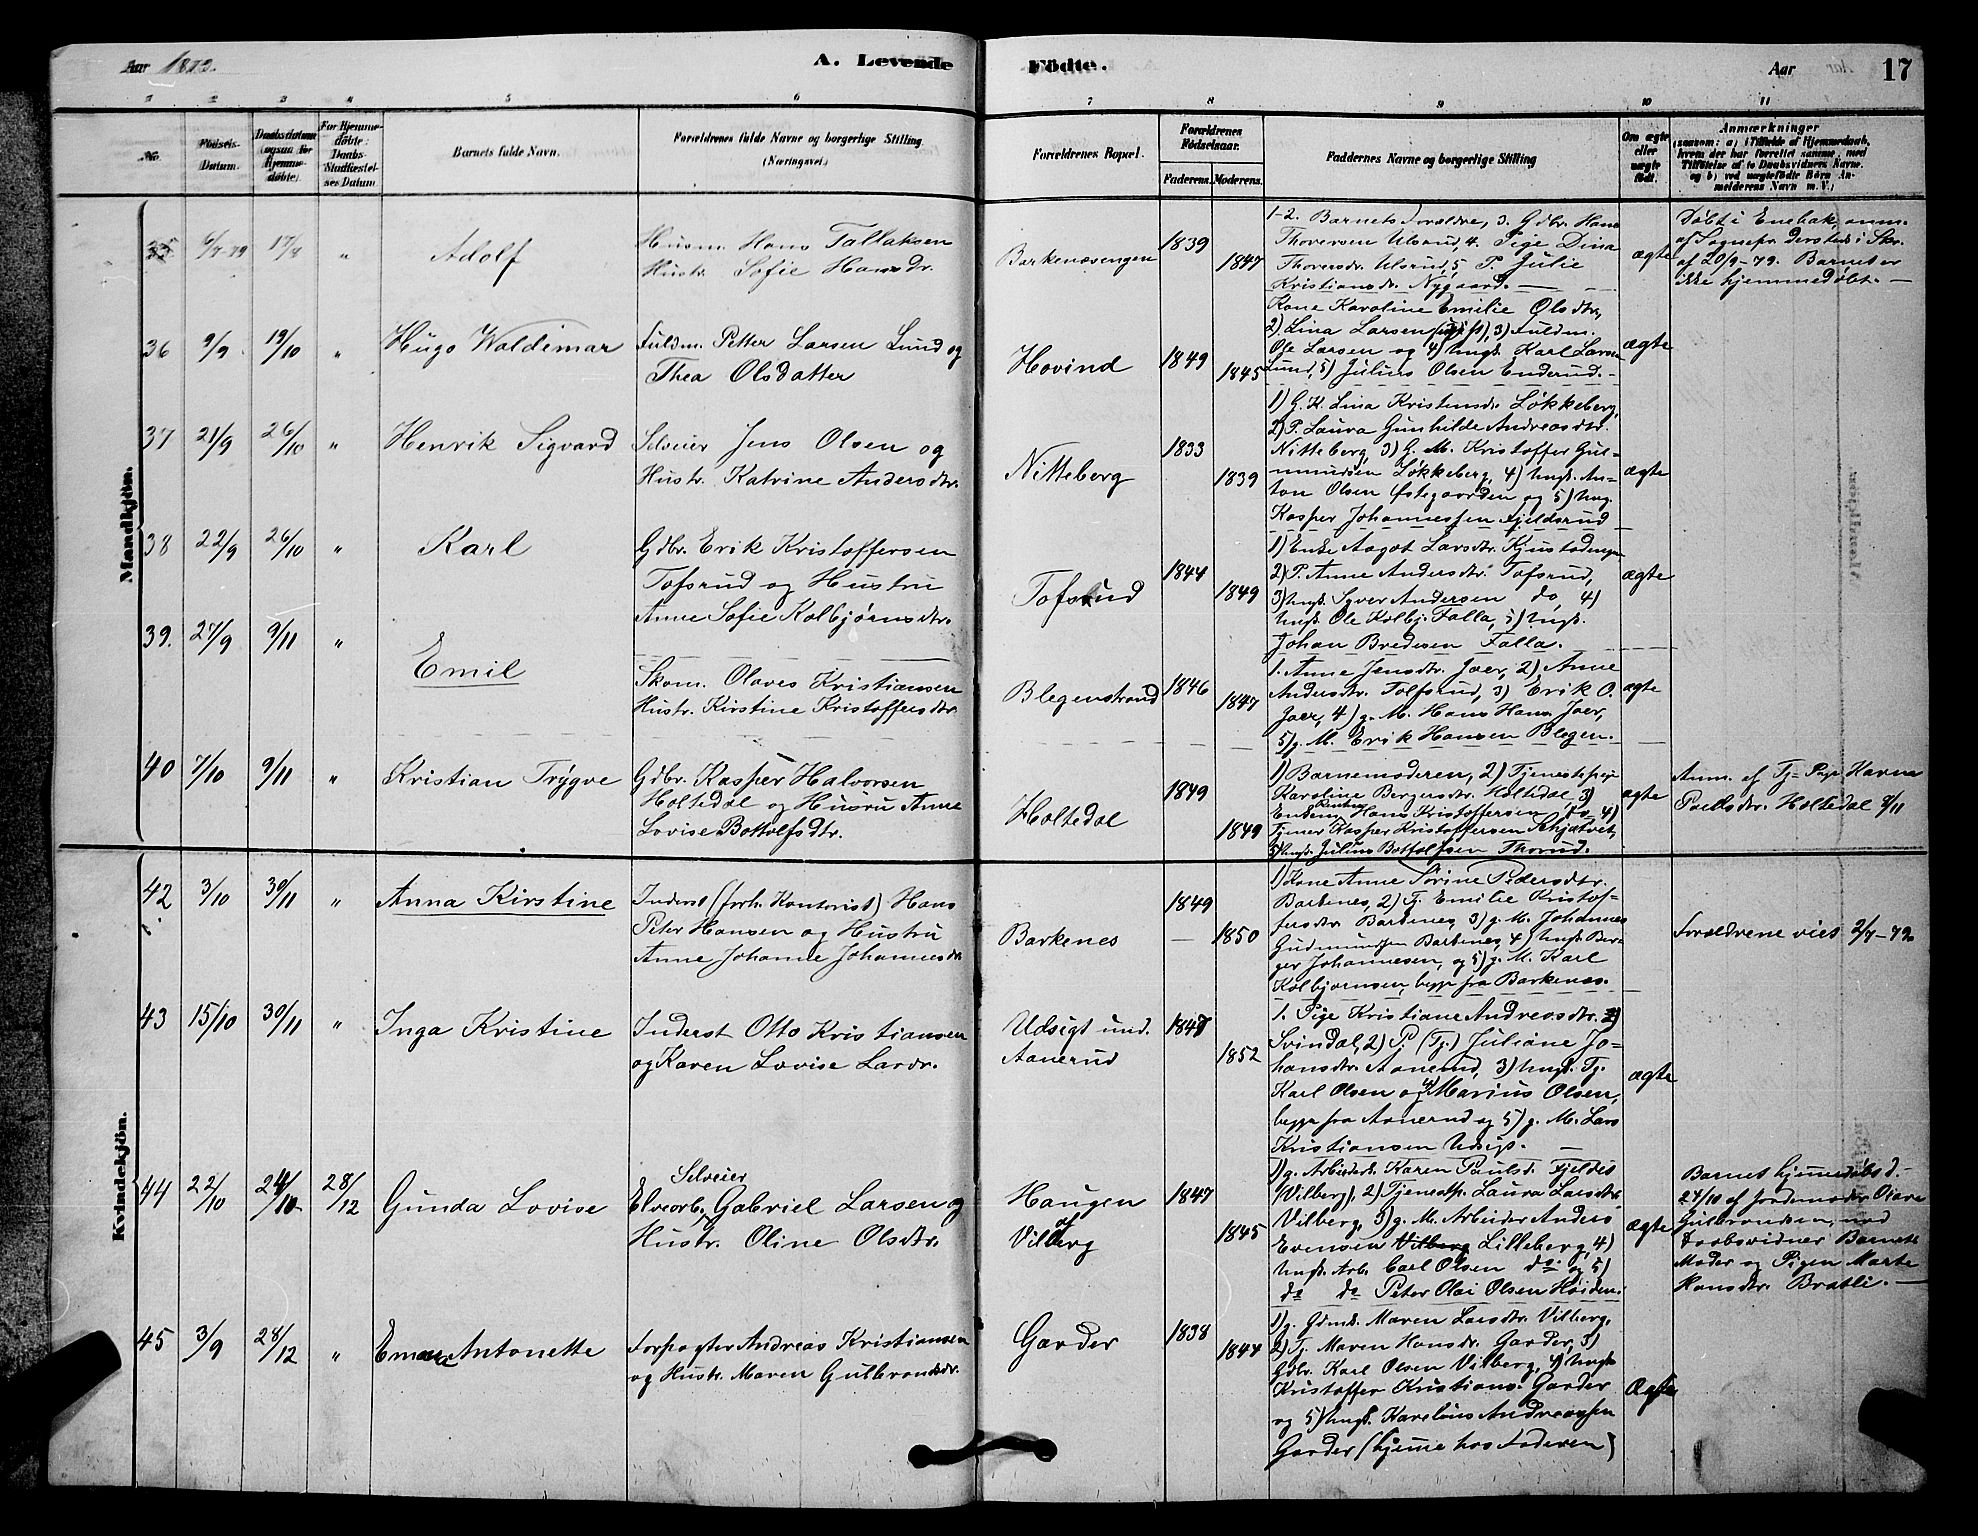 Aar 1879.
A. Levende
Födte.
Aar
17
1 2 3 4 5 6 7 8 9 10 11
No.
Födsels-
Datum.
Daabsdatum
(ogsaa for
Hjemme-
døbte).
For Hjemme-
døbte:
Daabs-
Stadfæstel-
ses Datum.
Barnets fulde Navn.
Forældrenes fulde Navne og borgerlige Stilling
(Næringsvei).
Forældrenes Bopæl.
Forældrenes
Fødselsaar.
Faderens. Moderens.
Faddernes Navne og borgerlige Stilling
Om ægte
eller
uægte
født.
Anmærkninger
(saasom: a) i Tilfælde af Hjemmedaab,
hvem der har forrettet samme, med
Tilføielse af to Daabsvidners Navne.
og b) ved uægtefødte Børn An-
melderens Navn m. V.)
Mandkjön.
35 6/7-79 17/8 "
Adolf
Husm. Hans Tallaksen
Hustr. Sofie Hansdr.
Barkenæsengen
1839
1847
1-2. Barnets Forældre, 3. Gdbr. Hans
Thoversen Ulsrud, 4. Pige Dina
Thoversdr. Ulsrud, 5, P. Julie
Kristiansdr. Nygaard.
ægte
Døbt i Enebak, anm.
af Sognepr. dersteds i Skr.
af 20/9-79. Barnet er
ikke hjemmedøbt.
36 9/9 19/10 "
Hugo Waldemar
Fuldm. Petter Larsen Lund og
Thea Olsdatter
Hovind
1849
1845
Kone Karoline Emilie Olsdtr,
2) Lina Larsen (ugift), 3) Fuldm.
Ole Larsen og 4) Ungk. Karl Larsen
Lund, 5) Julius Olsen Enderud.
ægte
37 21/9 26/10 "
Henrik Sigvard
Selveier Jens Olsen og
Hustr. Katrine Andersdtr.
Nitteberg
1833
1839
1) G. K. Lina Kristensdr. Løkkeberg,
2) P. Laura Gunhilde Andreasdtr.
Nitteberg, 3) G. M. Kristoffer Gul-
mundsen Løkkeberg, 4) Ungk. An-
ton Olsen Østegaarden og 5) Ung.
Kasper Johannessen Fjeldsrud
ægte
38 22/9 26/10 "
Karl
Gdbr. Erik Kristoffersen
Tofsrud og Hustru
Anne Sofie Kolbjørnsdtr.
Tofsrud
1844
1849
1) Enke Aagot Larsdtr. Kjustadengen
2) P. Anne Andersdtr. Tofsrud,
3) Ungk. Syver Andersen do, 4)
Ungk. Ole Kolbj. Falla, 5) Ungk.
Johan Bredesen Falla.
ægte
39. 27/9 9/11 "
Emil
Skom. Olaves Kristiansen
Hustr. Kirstine Kristoffersdtr.
Blegenstrand
1846
1847
1. Anne Jensdtr. Joer, 2) Anne
Andersdtr. Tolfsrud, 3) Erik O.
Joer, 4) g. M. Hans Hans. Joer,
5) g. M. Erik Hansen Blegen.
ægte
40 7/10 9/11 "
Kristian Trygve
Gdbr. Kasper Halvorsen
Holtedal og Husru Anne
Lovise Bottolfsdtr.
Holtedal
1849
1849
1) Barnemoderen, 2) Tjenestepige
Karoline Bergersdtr. Holtedal, 3)
Hans Kristoffersen do 4)
Tjener Kasper Kristoffersen
5) Ungk. Julius Bottolfsen Thorud.
ægte
Anm. af Tj-Pige Karen
Paulsdtr. Holtedal 9/11
Kvindekjön.
42 3/10 30/11 "
Anna Kirstine
Inderst (forh. Kontorist) Hans
Peter Hansen og Hustru
Anne Johanne Johannesdr.
Barkenes
1849
1850
1) Kone Anne Sørine Pedersdtr.
Barkenes, 2) Tj. Emilie Kristof-
fersdtr Barkenes, 3) g. M. Johannes
Gudmundsen Barkenes, 4) Ungk. Ber-
ger Johannesen, og 5) g. M. Karl
Kolbjørnsen, begge fra Barkenes.
Forældrene viet 2/7-79
43 15/10 30/11 "
Inga Kristine
Inderst Otto Kristiansen
og Karen Lovise Larsdr.
Udsigt und.
Aanerud
1847
1852
1. Pige Kristiane Andreasdtr.
Svindal, 2) P. (Tj.) Juliane Jo-
hansdtr. Aanerud, 3) Ungk. Tj.
Karl Olsen og 4) Marius Olsen,
begge fra Aanerud og 5) g. M. Lars
Kristiansen Udsigt.
ægte
44 22/10 24/10 28/12
Gunda Lovise
Selveier
Elvearb. Gabriel Larsen og
Hustr. Oline Olsdtr.
Haugen
af
Vilberg
1847
1845
1) g. Arbeidsk. Karen Paulsd. Fjeldst
(Vilberg), 2) Tjenestp. Laura Larsdtr.
Vilberg, 3) g. M. Arbeider Anders
Evensen Vilberg Lilleberg, 4)
Ungk. Arb. Carl Olsen do og 5)
do do Peter Olai Olsen Høiden.
ægte
Barnet hjemmedøbt d.
24/10 af Jordemoder Olave
Gulbrandsen, ved
Daabsvidner Barnets
Moder og Pigen Marte
Hansdtr. Bratli.
45 3/9 28/12 "
Emma Antonette
Forpagter Andreas Kristiansen
og Hustr. Maren Gulbrandsdr.
Garder
1838
1844
1) g. Gdmk. Maren Larsdtr. Vilberg,
2) Tj. Maren Hansdr. Garder, 3)
Gdbr. Karl Olsen Vilberg, 4) Ungk
Kristoffer Kristians. Garder
og 5) Ungk. Karelius Andreassen
Garder (hjeme hos Faderen)
Ægte